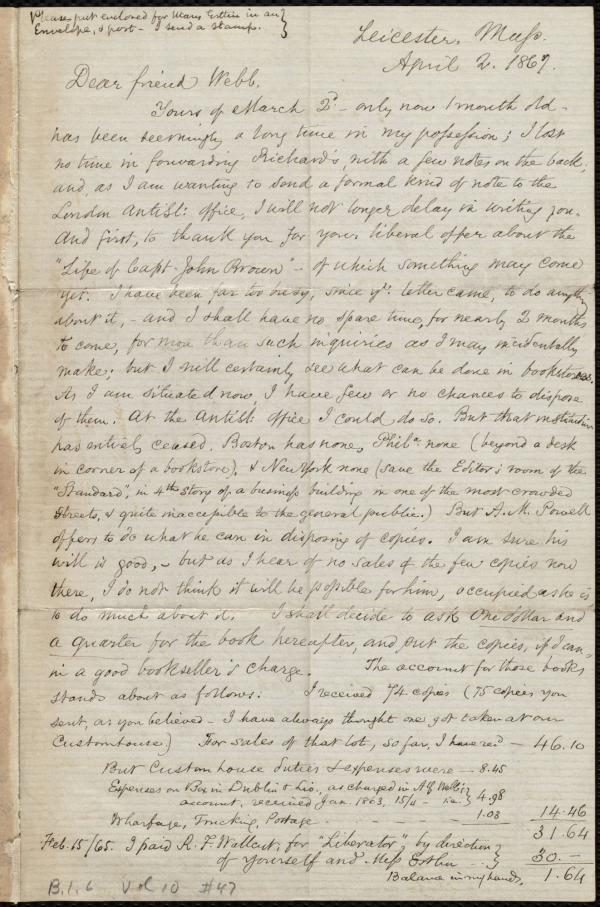 Please put enclosed for Mary Estlin in an
Envelope, & post - I send a stamp.
Leicester, Mass.
April 2. 1867.
Dear friend Webb,
Yours of March 2d - only now 1 month old -
has been seemingly a long time in my possession; I lost
no time in forwarding Richard's, with a few notes on the back,
and, as I am wanting to send a formal kind of note to the
London AntiSl: office, I will not longer delay in writing you.
And first, to thank you for your liberal offer about the
"Life of Capt. John Brown" - of which something may come
yet. I have been far too busy, since yr. letter came, to do anything
about it, - and I shall have no spare time, for nearly 2 months
to come, for more than such inquiries as I may incidentally
make; but I will certainly see what can be done in bookstores.
As I am situated now, I have few or no chances to dispose
of them. At the AntiSl: office I could do so. But that institution
has entirely ceased. Boston has none, Phila. none (beyond a desk
in corner of a bookstore), & New York none (save the Editor's room of the
"Standard", in 4th story of a business building in one of the most crowded
streets, & quite inaccessible to the general public.) But A. M. Powell
offers to do what he can in disposing of copies. I am sure his
will is good, - but as I hear of no sales of the few copies now
there, I do not think it will be possible for him, occupied as he is
to do much about it. I shall decide to ask One dollar and
a quarter for the book hereafter, and put the copies, if I can,
in a good bookseller's charge. The account for those books
stands about as follows: I received 74 copies (75 copies you
sent, as you believed - I have always thought one got taken at our
Customhouse.) For sales of that lot, so far, I have recd - 46.10
But Customhouse duties & expenses were - 8.45
Expenses on Box in Dublin & Liv., as charged in
account, received Jan. 1863, 15/4 - i.e. 4.98
Wharfage, Trucking, Postage - 1.03 14.46
31.64
Feb. 15/65. I paid R. F. Wallcut, for "Liberator", by direction
of yourself and Miss Estlin - 30. -
Balance in my hands, 1.64
B.1.6 Vol 10 #47